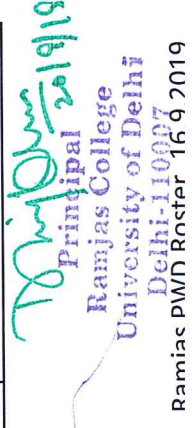 20/9/19
Principal
Ramjas College
University of Delhi
Delhi-110007
Ramjas PWD Roster 16.9.2019